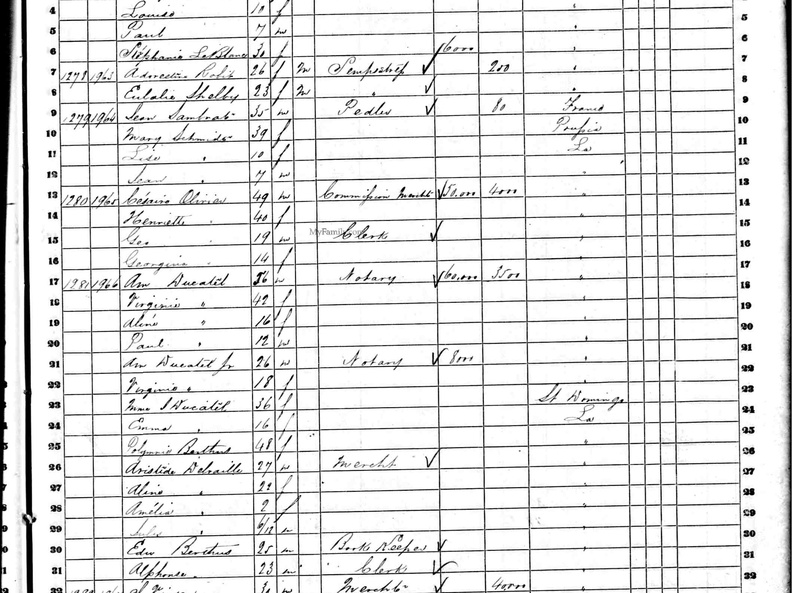 4 Louise 10 f " 4
5 Paul 7 m " 5
6 Stéphanie LeBlanc 30 f 6000 " 6
7 1278 1963 Colin 26 f M Sempstress 200 " 7
8 Eulalie Shelby 23 f M " " 8
9 1279 1964 Jean 35 m Pedler 80 France 9
10 Mary Schmidt 39 f Prussia 10
11 Lise " 10 f La 11
12 Jean " 7 m " 12
13 1280 1965 Césaire Olivier 49 m Commission Mercht 50,000 4000 " 13
14 Henriette " 40 f " 14
15 Geo " 19 m Clerk " 15
MyFamily.com
16 Georgina " 14 f " 16
17 1281 1966 Am Ducatel 56 m Notary 60,000 3500 " 17
18 Virginie " 42 f " 18
19 Aline " 16 f " 19
20 Paul " 12 m " 20
21 Am Ducatel Jr 26 m Notary 8000 " 21
22 Virginie " 18 f " 22
23 Mme Ducatel 36 f St Domingo 23
24 Emma " 16 f La 24
25 Polymnie Berthus 48 f " 25
26 Aristide 27 m Mercht " 26
27 Aline " 22 f " 27
28 Amélia " 2 f " 28
29 Jules " 9/12 m " 29
30 Edw Berthus 25 m Book Keeper " 30
31 Alphonse " 23 m Clerk "
30 m Mercht 4000 "